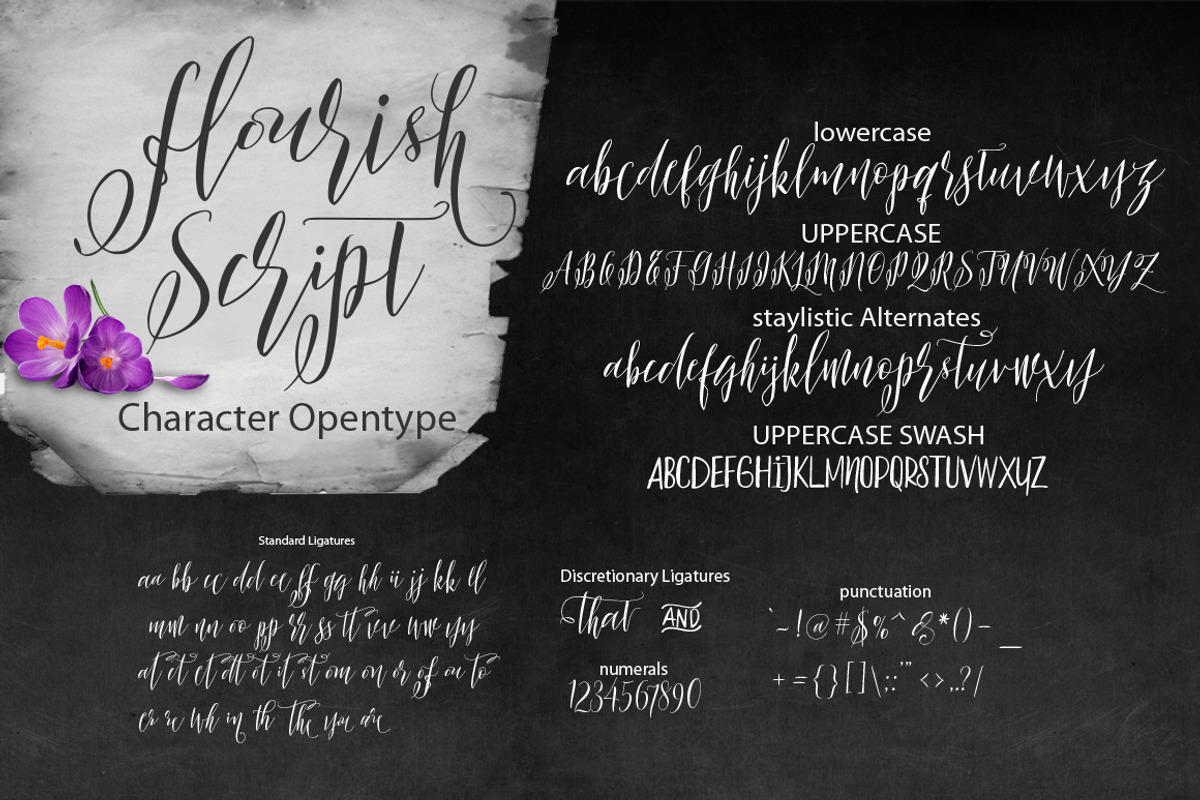 flourish
Script
Character Opentype
lowercase
abcdefghijklmnopqrstuvwxyz
UPPERCASE
ABCDEFGHIJKLMNOPQRSTUVWXYZ
staylistic Alternates
abcdefghijklmnoprstuvwxy
UPPERCASE SWASH
ABCDEFGHiJKLMNOPQRSTUVWXYZ
Standard Ligatures
aa bb cc dd ee ff gg hh ii jj kk ll
mm nn oo pp rr ss tt vv ww yy
at et ct dt ot it st om on or of ou to
er re wh in th the you are
Discretionary Ligatures
that AND
numerals
1234567890
punctuation
`~!@#$%^&*()-_
+={}[]\;:'"<>,.?/